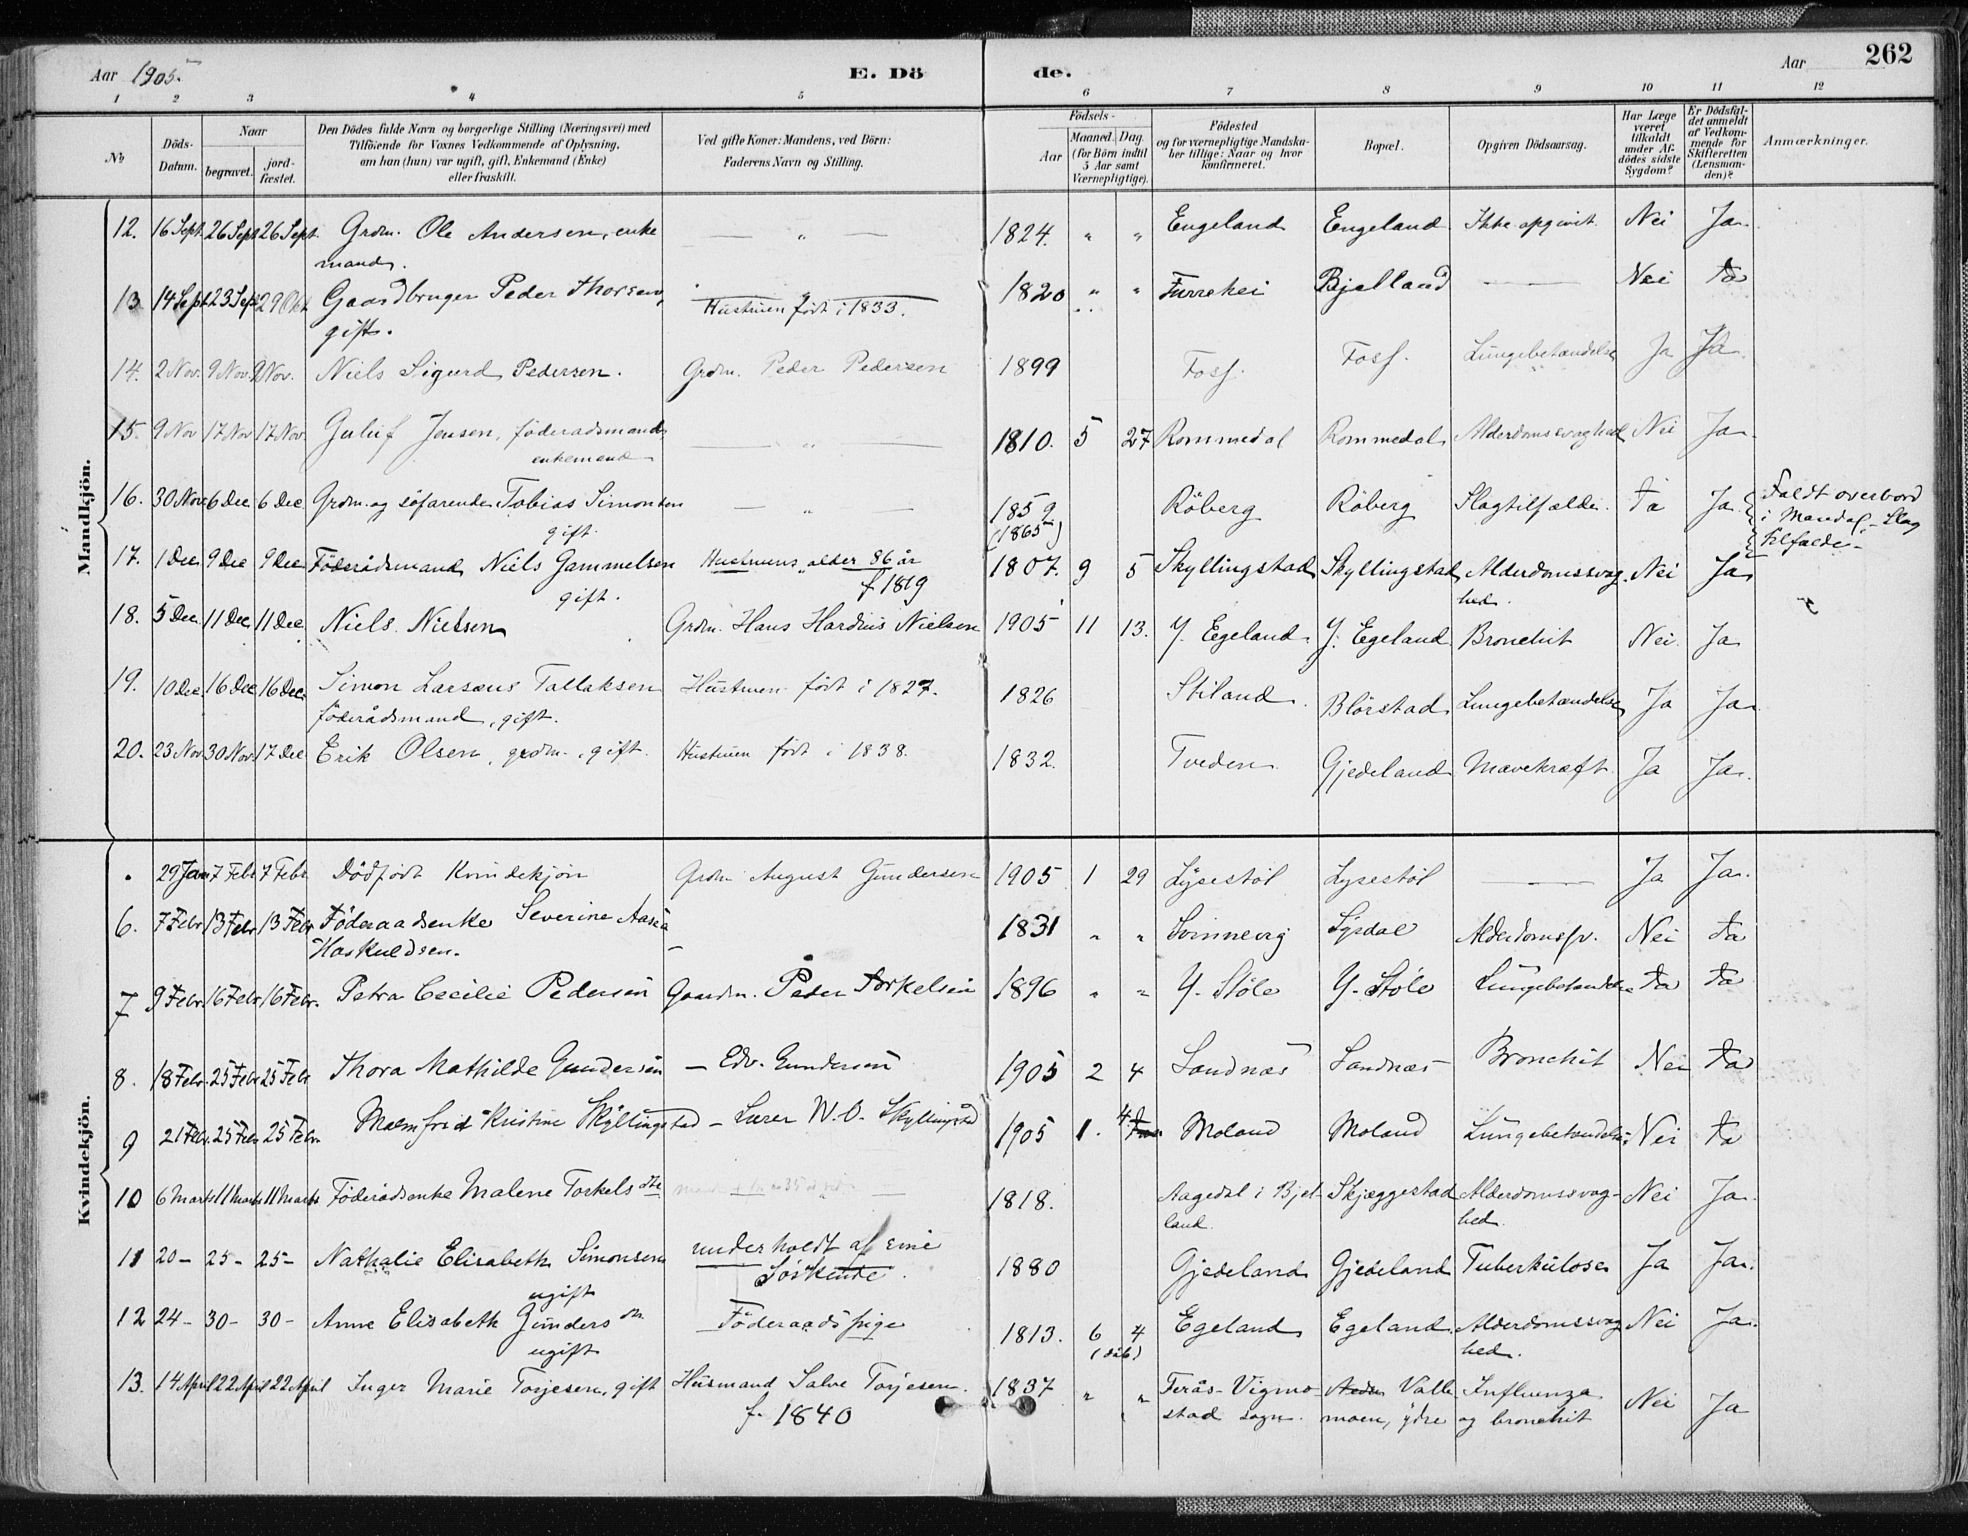 Aar 1905. E. Dö de. Aar 262
1 2 3 4 5 6 7 8 9 10 11 12
№ Döds-Datum. Naar begravet. jord-fæstet. Den Dödes fulde Navn og borgerlige Stilling (Næringsvei) med Tilföiende for Voxnes Vedkommende af Oplysning, om han (hun) var ugift, gift, Enkemand (Enke) eller fraskilt. Ved gifte Koner: Mandens, ved Börn: Faderens Navn og Stilling. Födsels- Aar Maaned. Dag. (for Börn indtil 5 Aar samt Værnepligtige). Födested og for værnepligtige Mandskaber tillige: Naar og hvor konfirmeret. Bopæl. Opgiven Dödsaarsag. Har Læge været tilkaldt under Afdödes sidste Sygdom? Er Dödsfaldet anmeldt af Vedkommende for Skifteretten (Lensmanden)? Anmærkninger.
Mandkjön.
12. 16 Sept. 26 Sept 26 Sept. Grdm. Ole Andersen, enke — „ — 1824. „ „ Engeland Engeland Ikke opgivit. Nei Ja.
mand.
13. 14 Sept 23 Sept 29 Okt Gaardbruger Peder Thorsen, — „ — 1820 „ „ Furrehei Bjelland — Nei Ja
gift. Hustruen født i 1833.
14. 2 Nov. 9 Nov. 9 Nov. Niels Sigurd Pedersen. Grdm. Peder Pedersen 1899 Foss. Foss. Lungebetændelse Ja Ja.
15. 9 Nov 17 Nov 17 Nov. Guluf Jensen, föderadsmand — „ — 1810. 5 27 Rommedal Rommedal Alderdomssvaghed Nei Ja.
enkemand
16. 30 Nov. 6 Dec 6 Dec Grdm. og söfarende Tobias Simonsen — „ — 1859 Röberg Röberg Slagtilfælde. Ja Ja. Faldt overbord
gift. (1865) i Mandal - Slag
tilfælde.-
17. 1 Dec 9 Dec 9 Dec Föderådsmand Niels Gammelsen Hustruens alder 86 år 1807. 9 5 Skyllingstad Skyllingstad Alderdomssvag- Nei Ja
gift. f. 1819 hed.
18. 5 Dec 11 Dec 11 Dec Niels Nielsen Grdm. Hans Hardius Nielsen 1905 11 13. Y. Egeland. Y. Egeland Bronchit Nei. Ja
19. 10 Dec 16 Dec 16 Dec. Simon Larsens Tallaksen Hustruen født i 1827. 1826 Stiland. Blörstad Lungebetændelse Ja Ja
föderådsmand, gift.
20. 23 Nov 30 Nov. 17 Dec Erik Olsen, grdm., gift. Hustruen født i 1838. 1832. Tveden Gjedeland Mavekræft. Ja Ja.
Kvindekjön.
. 29 Jan 7 Febr 7 Febr. Dödfödt Kvindekjön Grdm August Gundersen 1905 1 29 Lysestöl Lysestöl — Ja Ja.
6. 7 Febr. 13 Febr 13 Febr Föderaadsenke Severine Aasea — 1831 „ „ Svinnevig Syrdal Alderdomssv. Nei Ja
Haskuldsen.
7 9 Febr. 16 Febr 16 Febr. Petra Cecilie Pedersen Gaardm. Peder Torkelsen 1896 „ „ Y. Stöle Y. Stöle Lungebetændelse Ja Ja
8. 18 Febr. 25 Febr 25 Febr Thora Mathilde Gundersen — Edv. Gundersen 1905 2 4 Landnæs Landnæs Bronchit Nei Ja
9 21 Febr. 25 Febr 25 Febr. Malmfrid Kristine Skyllingstad — Lærer N. O. Skyllingstad 1905 1. 4 Moland Moland Lungebetændelse Nei Ja
10 6 Marts 11 Marts 11 Marts Föderådsenke Malene Torkels dtr — 1818. Aagedal i Bjel- Skjæggestad Alderdomssvag- Nei Ja.
land. hed.
11 20 - 25 - 25 - Nathalie Elisabeth Simonsen underholdt af sine 1880 Gjedeland Gjedeland Tuberkulose Ja Ja.
ugift Söskende.
12 24 - 30 - 30 - Anne Elisabeth Gunders dtr. Föderaadspige 1813. 6 4 Egeland Egeland. Alderdomssvag- Nei Ja.
ugift (dåb) hed.
13. 14 April 22 April 22 April Inger Marie Torjesen, gift Husmand Salve Torjesen. 1837 „ „ Ferås- Vigmo- Valle- Influenza Nei Ja
f. 1840 stad sogn. moen, ydre og bronchit